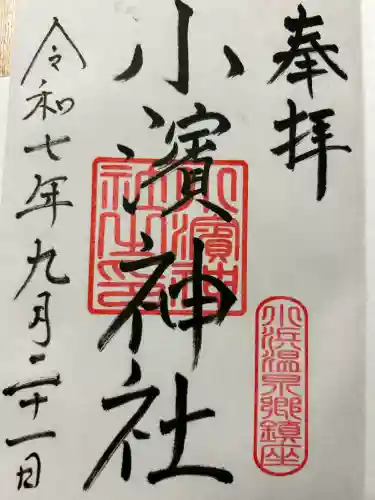 奉拝
小浜温泉郷鎮座
小濱神社
小濱神社之印
令和七年九月二十一日